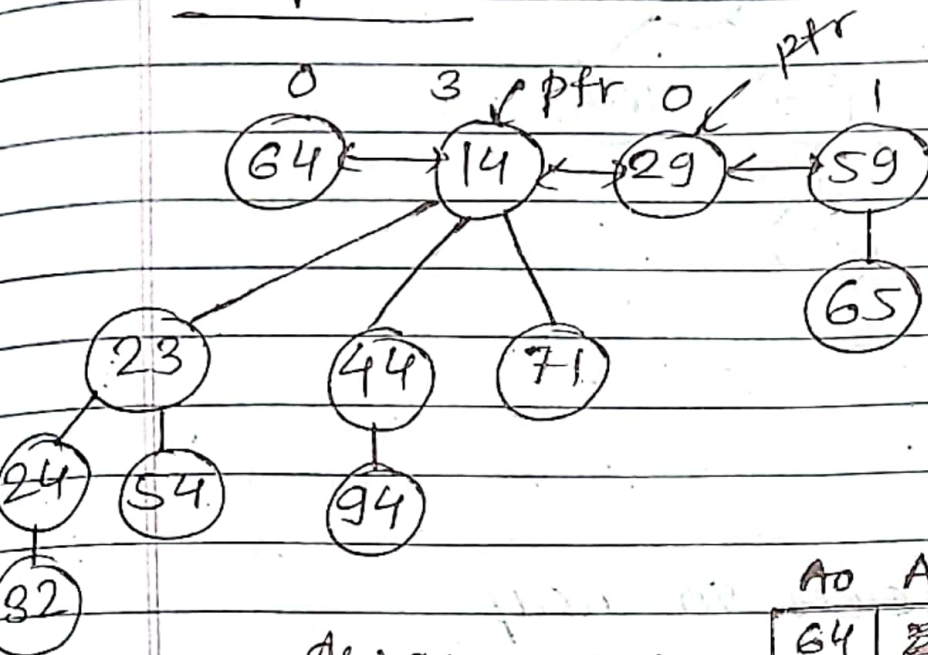 ptr
0 3 ptr 0 1
64 14 29 59
65
23 44 71
24 54 94
32
A0 A
64